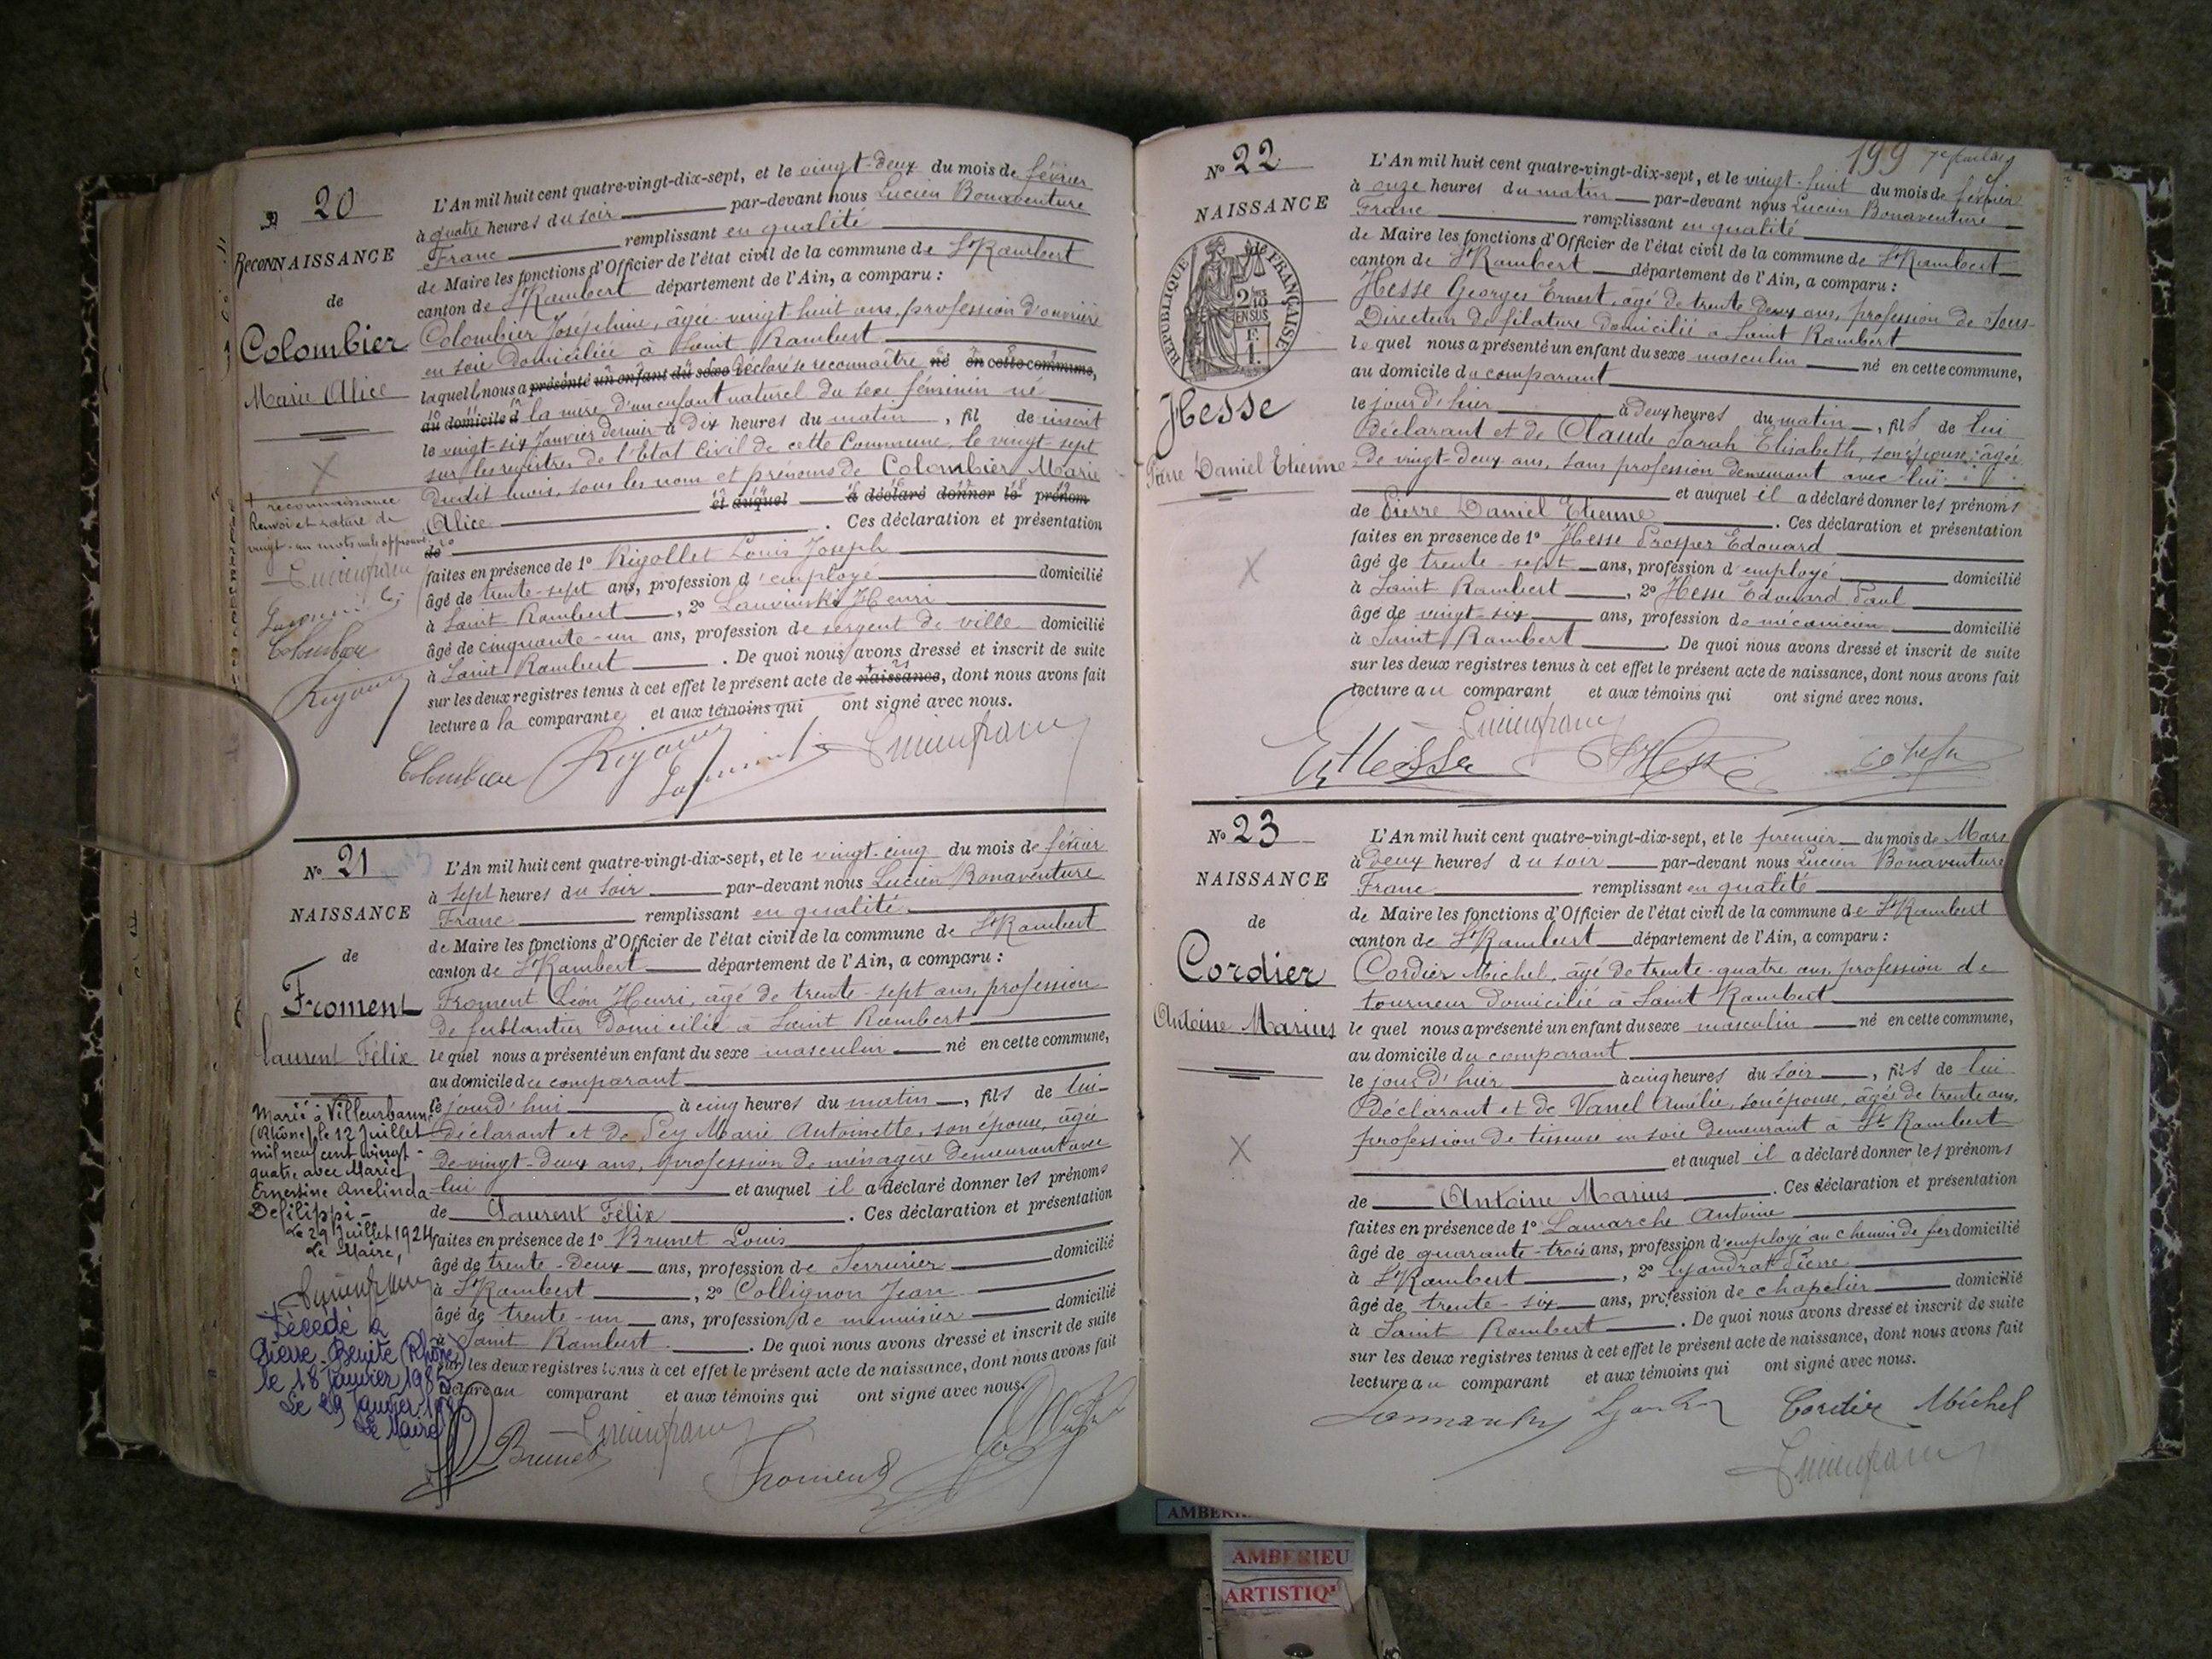 20
RECONNAISSANCE
de
Colombier
Marie Alice
reconnaissance
Renvoi et rature de
vingt-un mots nuls approuvé
L'An mil huit cent quatre-vingt-dix-sept, et le vingt-deux du mois de février
à quatre heures du soir par-devant nous Lucien Bonaventure
Franc remplissant en qualité
de Maire les fonctions d'Officier de l'état civil de la commune de St Rambert
canton de St Rambert département de l'Ain, a comparu :
Colombier Joséphine, âgée vingt-huit ans, profession d'ouvrière
en soie domiciliée à Saint Rambert
laquelle nous a présenté un enfant du sexe déclaré se reconnaître né en cette commune,
au domicile d la mère d'un enfant naturel du sexe féminin né
le vingt-six Janvier dernier à dix heures du matin, fil de inscrit
sur les registres de l'Etat Civil de cette Commune, le vingt sept
dudit mois, sous les nom et prénoms de Colombier Marie
et auquel a déclaré donner le prénom
Alice . Ces déclaration et présentation
de
faites en présence de 1º Rigollet Louis Joseph
âgé de trente-sept ans, profession d'employé domicilié
à Saint Rambert, 2º Henri
âgé de cinquante-un ans, profession de sergent de ville domicilié
à Saint Rambert . De quoi nous avons dressé et inscrit de suite
sur les deux registres tenus à cet effet le présent acte de naissance, dont nous avons fait
lecture a la comparante et aux témoins qui ont signé avec nous.
Nº 21
NAISSANCE
de
Froment
Laurent Félix
Marié à Villeurbanne
(Rhône) le 12 Juillet
mil neuf cent vingt-
quatre avec Maria
Ernestine Anelinda
Defilippi -
Le 29 Juillet 1924
Le Maire,
Décédé à
Pierre-Bénite (Rhône)
le 18 Janvier 1985
Le 29 Janvier
Le Maire
L'An mil huit cent quatre-vingt-dix-sept, et le vingt-cinq du mois de février
à sept heures du soir par-devant nous Lucien Bonaventure
Franc remplissant en qualité
de Maire les fonctions d'Officier de l'état civil de la commune de St Rambert
canton de St Rambert département de l'Ain, a comparu :
Froment Léon Henri, âgé de trente-sept ans, profession
de ferblantier domicilié à Saint Rambert
lequel nous a présenté un enfant du sexe masculin né en cette commune,
au domicile du comparant
le jourd'hui à cinq heures du matin, fils de lui
déclarant et de Pey Marie Antoinette, son épouse, âgée
de vingt-deux ans, profession de ménagère demeurant avec
lui et auquel il a déclaré donner les prénoms
de Laurent Félix . Ces déclaration et présentation
faites en présence de 1º Brunet Louis
âgé de trente-deux ans, profession de Serrurier domicilié
à St Rambert, 2º Collignon Jean
âgé de trente-un ans, profession de menuisier domicilié
à Saint Rambert . De quoi nous avons dressé et inscrit de suite
sur les deux registres tenus à cet effet le présent acte de naissance, dont nous avons fait
lecture au comparant et aux témoins qui ont signé avec nous.
Brunet
Froment
199
Nº 22
NAISSANCE
RÉPUBLIQUE FRANÇAISE
2/10
EN SUS
Hesse
Pierre Daniel Etienne
L'An mil huit cent quatre-vingt-dix-sept, et le vingt-huit du mois de février
à onze heures du matin par-devant nous Lucien Bonaventure
Franc remplissant en qualité
de Maire les fonctions d'Officier de l'état civil de la commune de St Rambert
canton de St Rambert département de l'Ain, a comparu :
Hesse Georges Ernest, âgé de trente deux ans, profession de Sous-
Directeur de filature domicilié à Saint Rambert
lequel nous a présenté un enfant du sexe masculin né en cette commune,
au domicile du comparant
le jour d'hier à deux heures du matin, fils de lui
déclarant et de Claude Sarah Elisabeth, son épouse, âgée
de vingt-deux ans, sans profession demeurant avec lui
et auquel il a déclaré donner les prénoms
de Pierre Daniel Etienne . Ces déclaration et présentation
faites en présence de 1º Hesse Prosper Edouard
âgé de trente-sept ans, profession d'employé domicilié
à Saint Rambert, 2º Hesse Edouard Paul
âgé de vingt-six ans, profession de mécanicien domicilié
à Saint Rambert . De quoi nous avons dressé et inscrit de suite
sur les deux registres tenus à cet effet le présent acte de naissance, dont nous avons fait
lecture au comparant et aux témoins qui ont signé avec nous.
Hesse
Nº 23
NAISSANCE
de
Cordier
Antoine Marius
L'An mil huit cent quatre-vingt-dix-sept, et le premier du mois de Mars
à deux heures du soir par-devant nous Lucien Bonaventure
Franc remplissant en qualité
de Maire les fonctions d'Officier de l'état civil de la commune de St Rambert
canton de St Rambert département de l'Ain, a comparu :
Cordier Michel, âgé de trente-quatre ans, profession de
tourneur domicilié à Saint Rambert
lequel nous a présenté un enfant du sexe masculin né en cette commune,
au domicile du comparant
le jour d'hier à cinq heures du soir, fils de lui
déclarant et de Vanel Amélie, son épouse, âgée de trente ans,
profession de tisseuse en soie demeurant à St Rambert
et auquel il a déclaré donner les prénoms
de Antoine Marius . Ces déclaration et présentation
faites en présence de 1º Lamarche Antoine
âgé de quarante-trois ans, profession d'employé au chemin de fer domicilié
à St Rambert, 2º Lyandrat Pierre
âgé de trente-six ans, profession de chapelier domicilié
à Saint Rambert . De quoi nous avons dressé et inscrit de suite
sur les deux registres tenus à cet effet le présent acte de naissance, dont nous avons fait
lecture au comparant et aux témoins qui ont signé avec nous.
Cordier Michel
AMBERIEU
ARTISTIQ